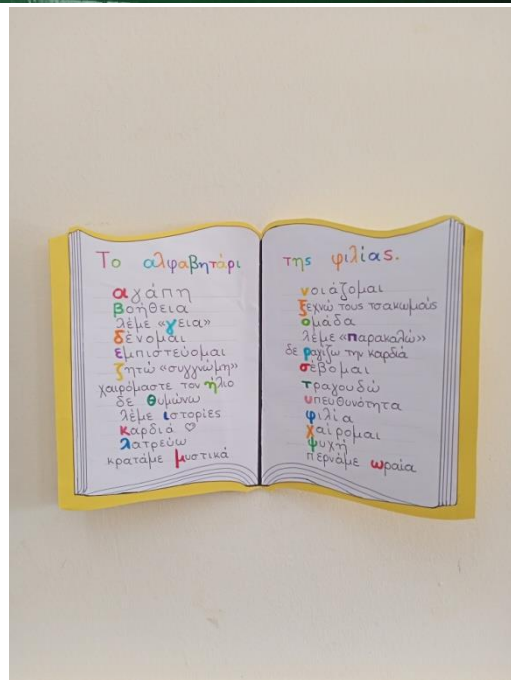 Το αλφαβητάρι
αγάπη
βοήθεια
λέμε «γεια»
δένομαι
εμπιστεύομαι
ζητώ «συγγνώμη»
χαιρόμαστε τον ήλιο
δε θυμώνω
λέμε ιστορίες
καρδιά ♡
λατρεύω
κρατάμε μυστικά
της φιλίας.
νοιάζομαι
ξεχνώ τους τσακωμούς
ομάδα
λέμε «παρακαλώ»
δε ραγίζω την καρδιά
σέβομαι
τραγουδώ
υπευθυνότητα
φιλία
χαίρομαι
ψυχή
περνάμε ωραία